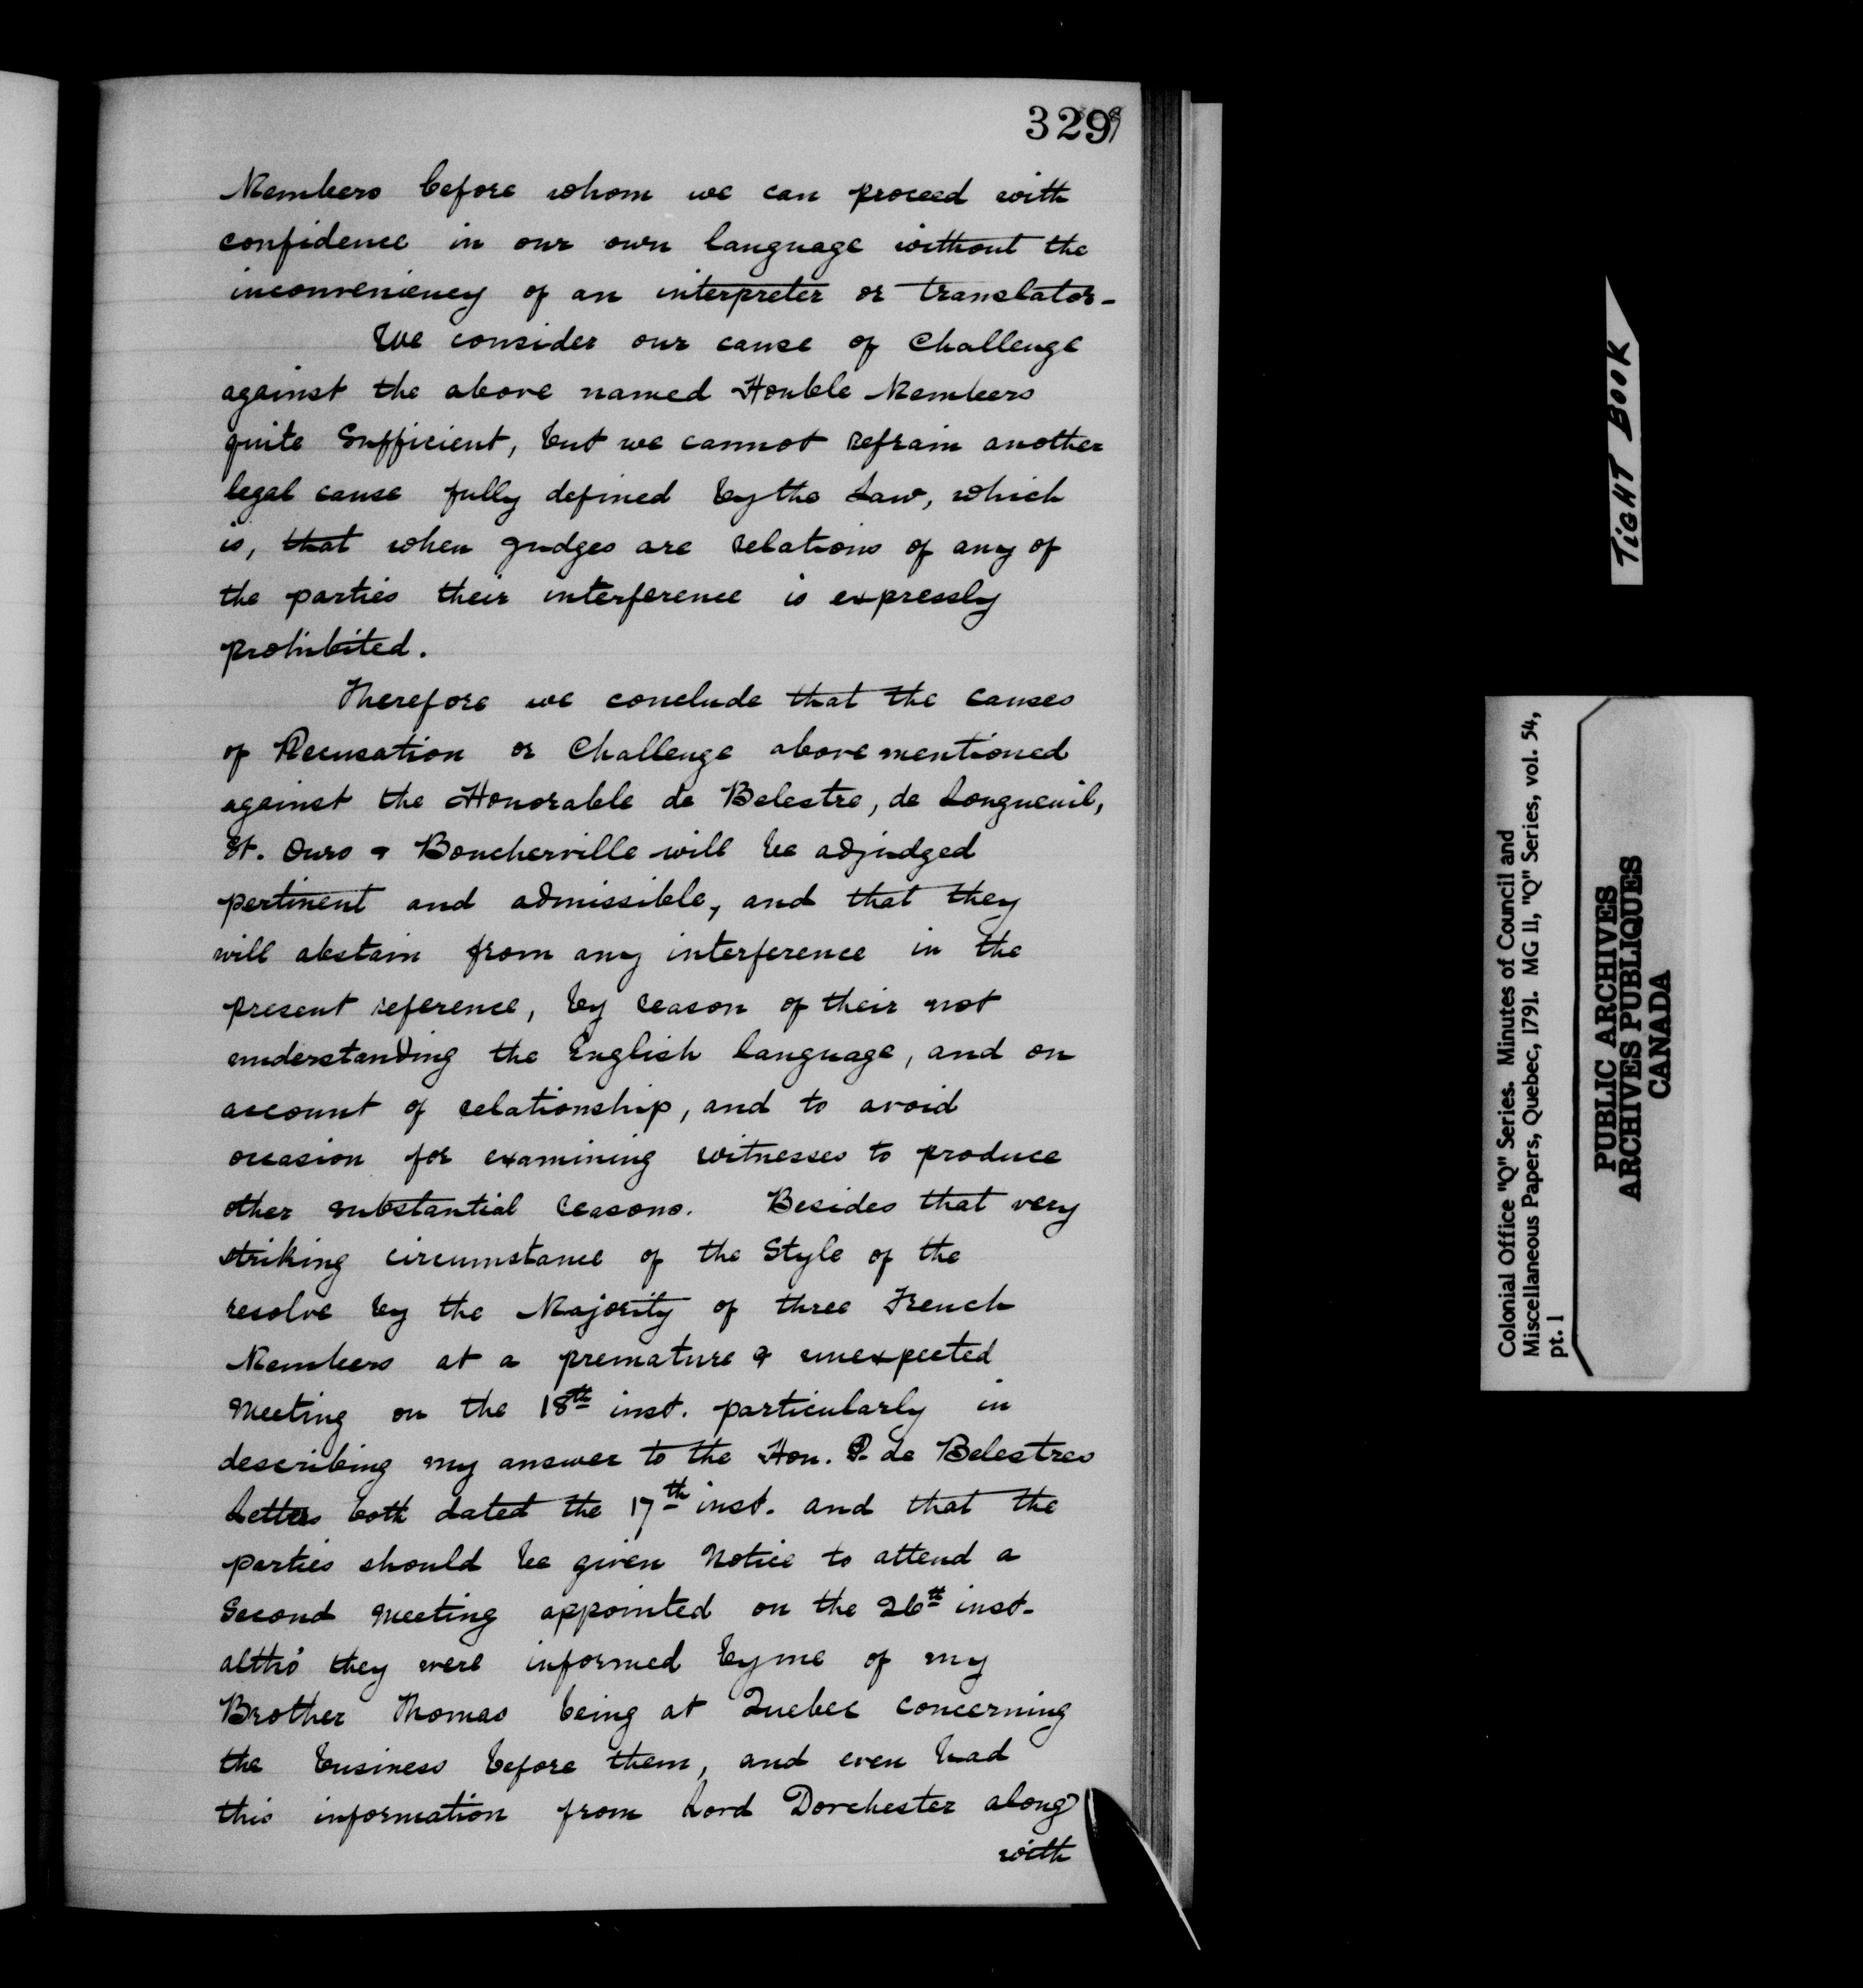 329
Members before whom we can proceed with
confidence in our own language without the
inconveniency of an interpreter or translator-
We consider our cause of Challenge
against the above named Honble Members
quite Sufficient, but we cannot refrain another
legal cause fully defined by the Law, which
is, that when Judges are relations of any of
the parties their interference is expressly
prohibited.
Therefore we conclude that the causes
of Recusation or Challenge above mentioned
against the Honorable de Belestre, de Longueuil,
St. Ours & Boucherville will be adjudged
pertinent and admissible, and that they
will abstain from any interference in the
present reference, by reason of their not
understanding the English language, and on
account of relationship, and to avoid
occasion for examining witnesses to produce
other substantial reasons. Besides that very
striking circumstance of the Style of the
resolve by the Majority of three French
Members at a premature & unexpected
Meeting on the 18th inst. particularly in
describing my answer to the Hon. P. de Belestres
Letters both dated the 17th inst. and that the
parties should be given Notice to attend a
Second Meeting appointed on the 26th inst-
altho' they were informed by me of my
Brother Thomas being at Quebec concerning
the business before them, and even had
this information from Lord Dorchester along
with
TIGHT BOOK
Colonial Office "Q" Series. Minutes of Council and
Miscellaneous Papers, Quebec, 1791. MG 11, "Q" Series, vol. 54,
pt. 1
PUBLIC ARCHIVES
ARCHIVES PUBLIQUES
CANADA